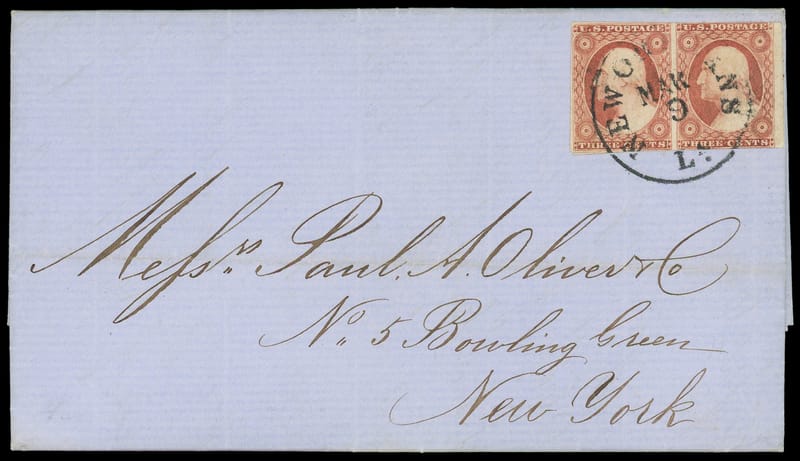 U.S. POSTAGE U.S. POSTAGE
NEW ORLEANS
MAR
9
La.
THREE CENTS THREE CENTS
Messrs. Paul. A. Oliver & Co
No. 5 Bowling Green
New York